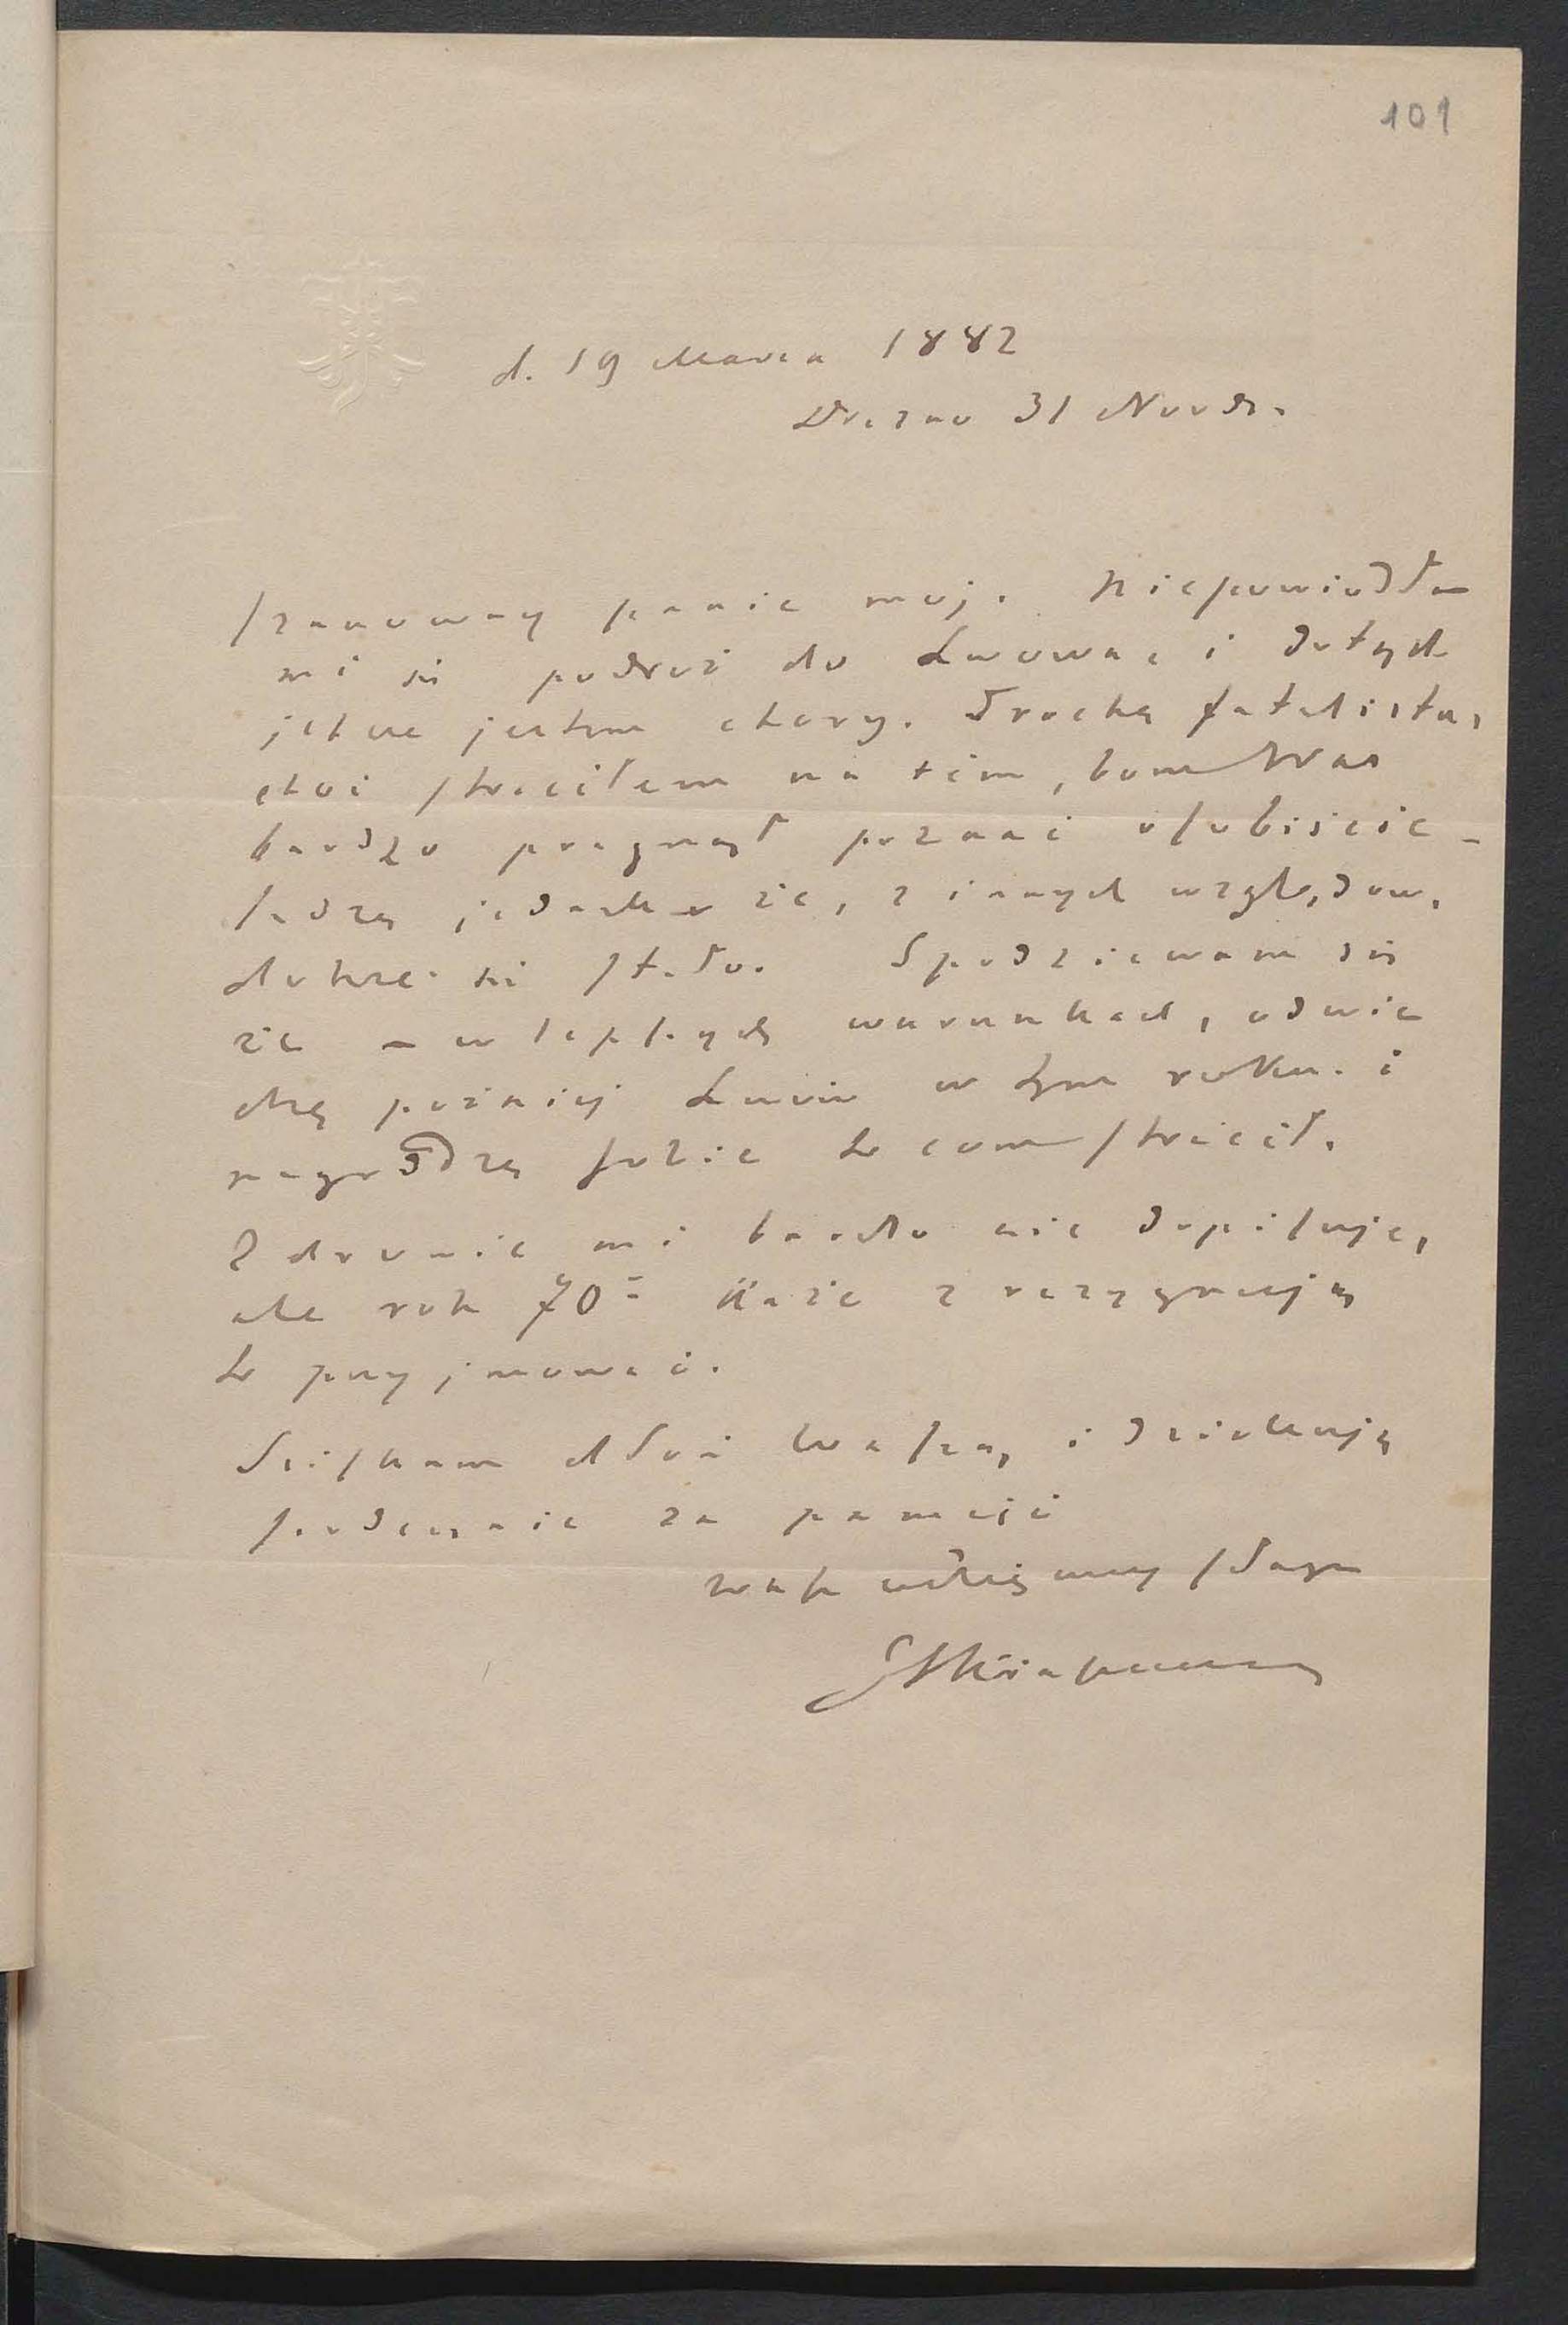 101
d. 19 Marca 1882
Drezno 31 Nords.
Szanowny panie moj. Niepowiodła
mi się podroż do Lwowa, i dotych
jeszcze jestem chory. Trochę fatalista,
choć straciłem na tem, bom Was
bardzo pragnął poznać osobiście –
sadzę jednak że, z innych względow,
dobrze się stało. Spodziewam się
że – w lepszych warunkach, odwie
dzę poźniej Lwów w tym roku. i
nagrodzę sobie to com stracił.
Zdrowie mi bardzo nie dopisuje,
ale rok 70y każe z rezygnacją
to przyjmować.
Sciskam dłoń Waszą, i dziękuję
serdecznie za pamięć
wasz wdzięczny sługa
JIKraszewski